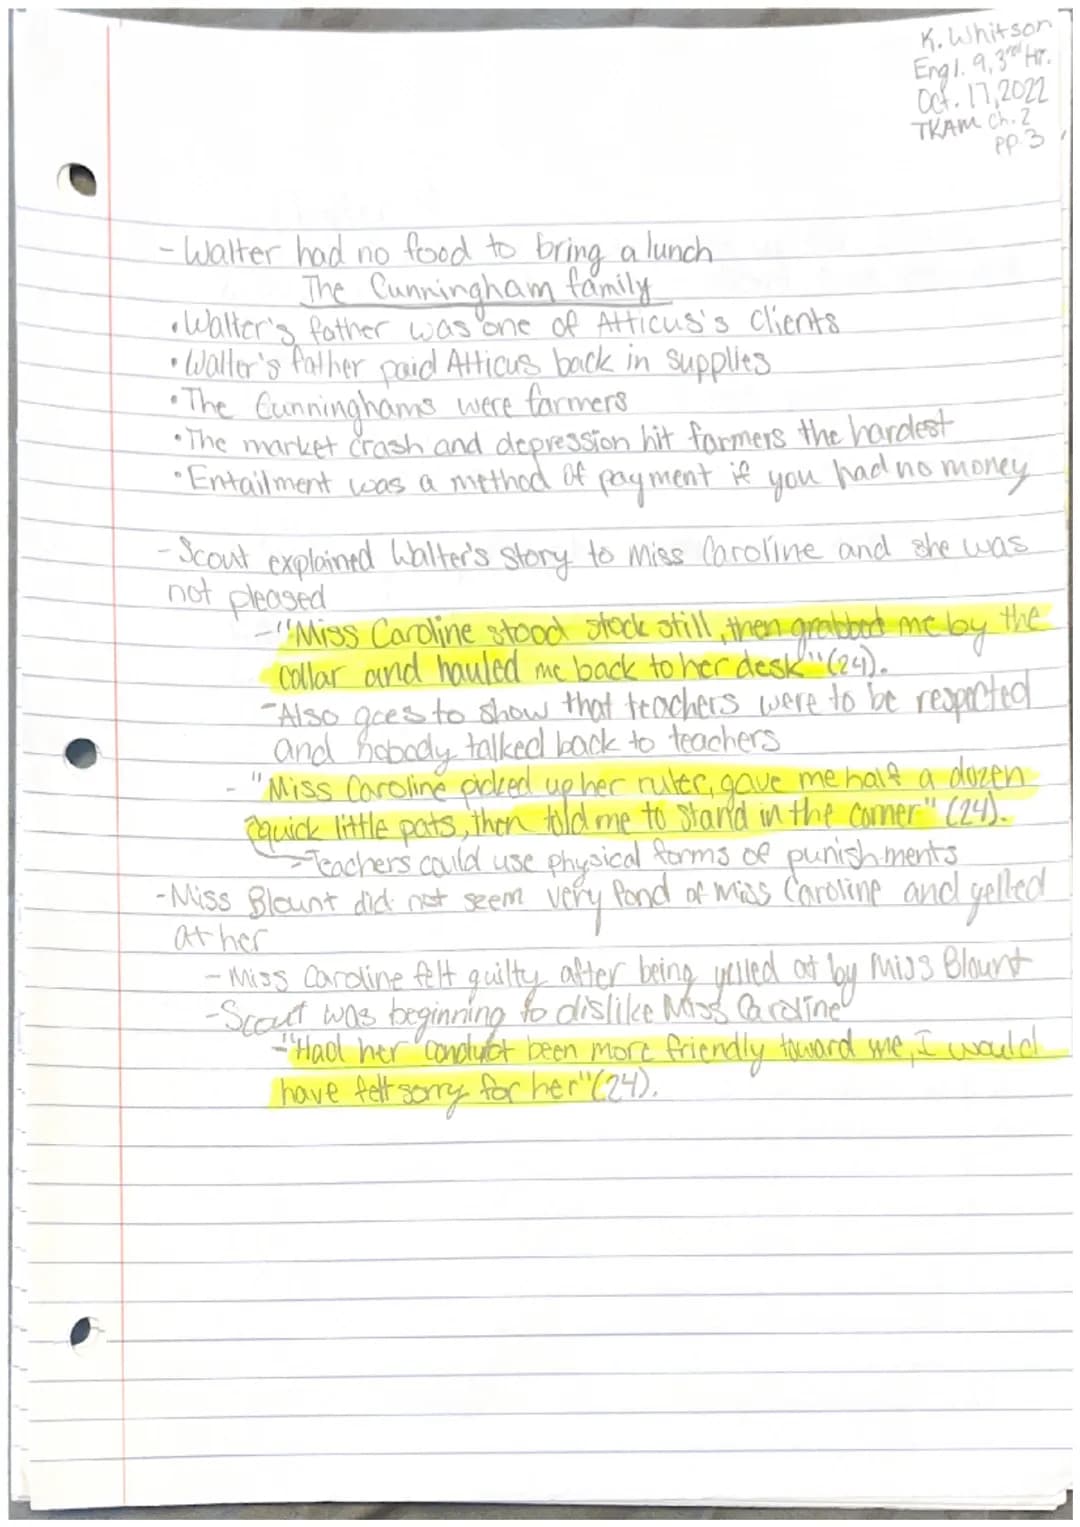 K. Whitson
Engl. 9, 3rd Hr.
Oct. 17, 2022
TKAM Ch. 2
pp. 3
- Walter had no food to bring a lunch
The Cunningham family
• Walter's father was one of Atticus's clients
• Walter's father paid Atticus back in supplies
• The Cunninghams were farmers
• The market crash and depression hit farmers the hardest
• Entailment was a method of payment if you had no money
- Scout explained Walter's story to Miss Caroline and she was
not pleased
- "Miss Caroline stood stock still, then grabbed me by the
collar and hauled me back to her desk" (24).
- Also goes to show that teachers were to be respected
and nobody talked back to teachers
- "Miss Caroline picked up her ruler, gave me half a dozen
quick little pats, then told me to stand in the corner" (24).
- Teachers could use physical forms of punishments
- Miss Blount did not seem very fond of Miss Caroline and yelled
at her
- Miss Caroline felt guilty after being yelled at by Miss Blount
- Scout was beginning to dislike Miss Caroline
- "Had her conduct been more friendly toward me, I would
have felt sorry for her" (24).